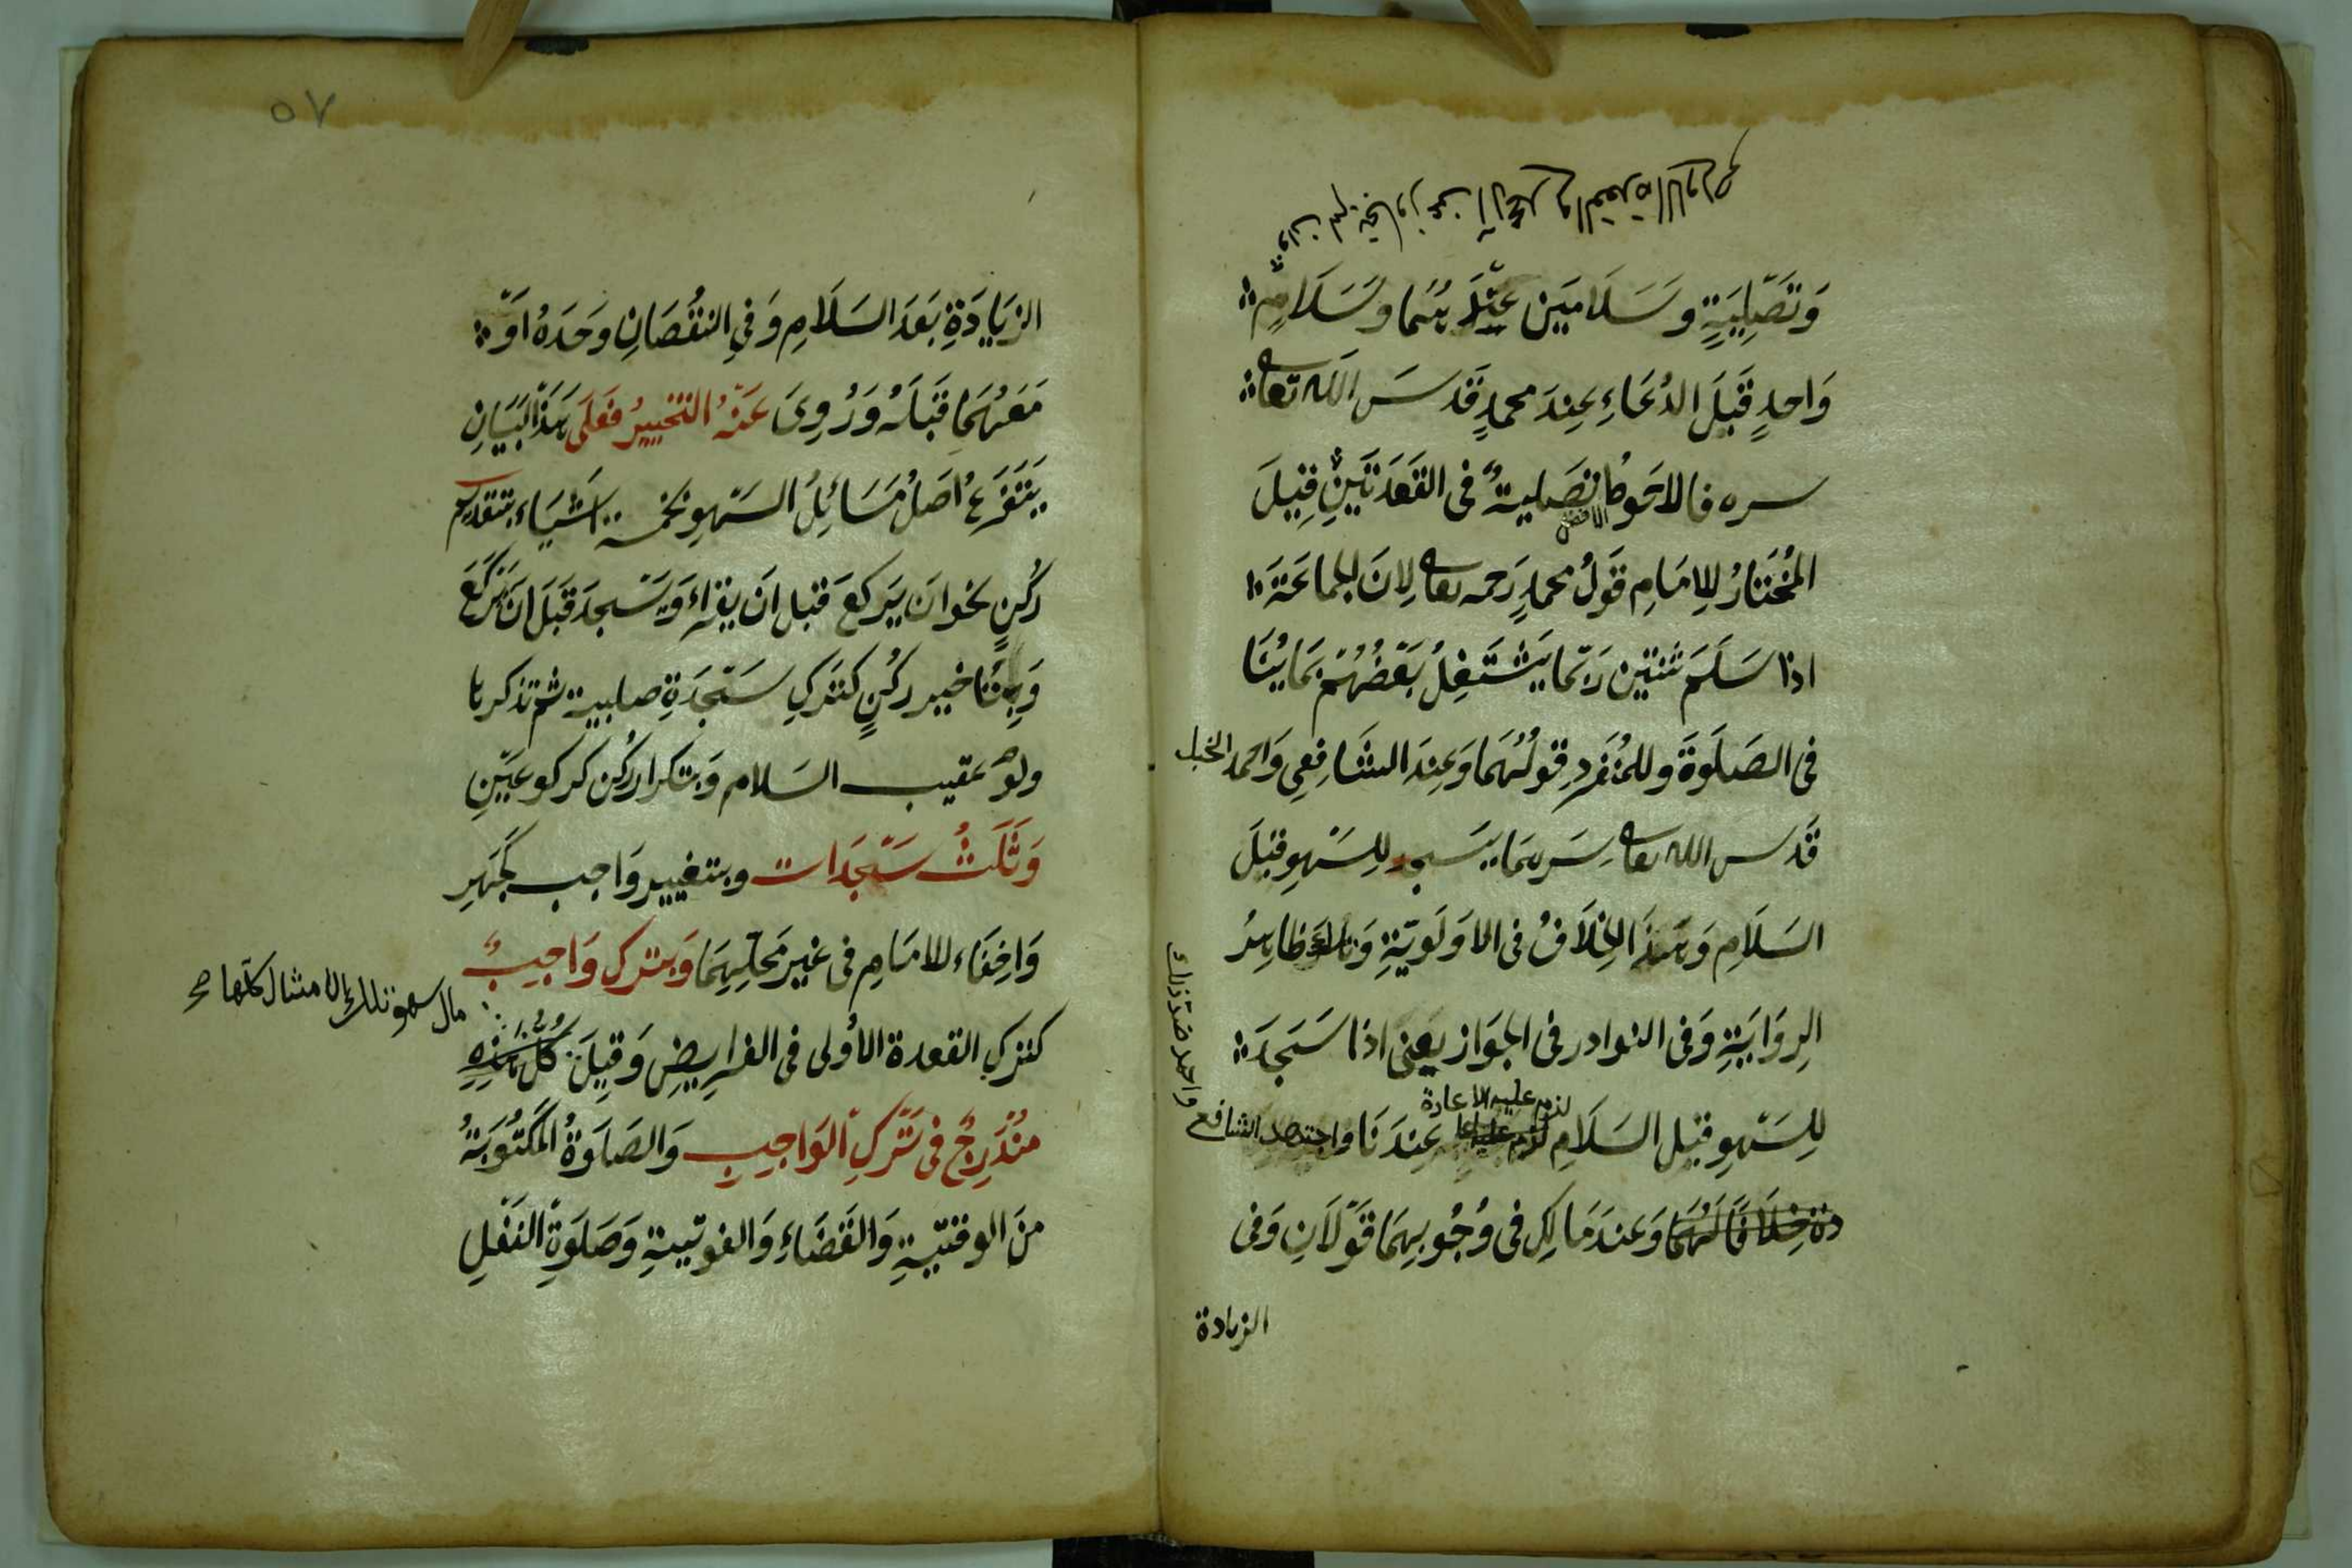 وَتَصْلِيَةٍ وَسَلَامَيْنِ عِنْدَهُمَا وَسَلَامٍ
وَاحِدٍ قَبْلَ الدُعَاءِ عِنْدَ محمدٍ قَدَّسَ الله تعالى
سره فالاحوط تصلية فى القعدتين قيلَ
الافضل
المُخْتَارُ لِلِامَامِ قَوْلُ محمدٍ رَحمه تعالى لِانَ الجماعَةَ
اذا سَلَّمَ ثنتين رَبّما يَشْتَغِلُ بَعْضُهُمْ بِمَا يُنَا
فى الصَلَوةَ وللمُنْفَرِدِ قولُهُمَا وَعِنْدَ الشَافِعِى وَاحمد الحنبل
قَدس الله تعالى سَرهما يَسجد للسَّهوِ قبْلَ
السَلَامِ وَهَذَا الخِلَافُ فى الاَوْلَوِيّةِ وَ ظاهِرُ
الرِوَايَةِ وَفى النوادر فى الجوَاز يعنى اذا سَجَدَ
لزم عليه الاعادة
لِلسَّهوِ قبل السَلَامِ عِنْدَنَا الشافع
واحمد ضد ذلك
دة خِلَافًا لَهُمَا وَعندَ مَالِكِ فى وُجُوبِهِمَا قَوْلَانِ وَفى
الزيادة
٥٧
الزِيَادَةِ بَعْدَ السَلَامِ وَفىِ النقُصَانِ وَحْدَهُ اَوْ
مَعَهُمَا قَبْلَهُ وَرُوِىَ عَنْهُ التخييرُ فَعَلَى هَذَا البَيَانِ
يَتَفَرَعُ اَصْلُ مَسَائِلِ السَهوِ بخمسة اَشْيَاءَ بتقديم
رُكْنٍ نحو ان يَركعَ قبل اَن يَقراءَ وَيَسْجد قَبْلَ ان يَرْكَعَ
وَبِتَاخير ركْنٍ كتركِ سَجْدَةٍ صلبية ثم تذكرها
ولو عقيب السَلام وَبتكرار ركن كركوعَيْنِ
وَثَلَثُ سَجَدَات وبتغيير وَاجب كجَهْرِ
وَاِخفَاءِ للامَامِ فى غير مَحَلِّهِمَا وَبترك وَاجِبٍ
كترك القعدة الأولى فى الفرايضِ وَقِيلَ كُلُّ هَذِهِ
سهو تلك الامثال كلها صح
مُنْدَرِجٌ فى تَرْكِ الوَاجِبِ وَالصَلوَةُ المَكْتُوبَةُ
منَ الوقتيّةِ وَالقَضَاءِ وَالفوتيةِ وَصَلوَةِ النفْلِ